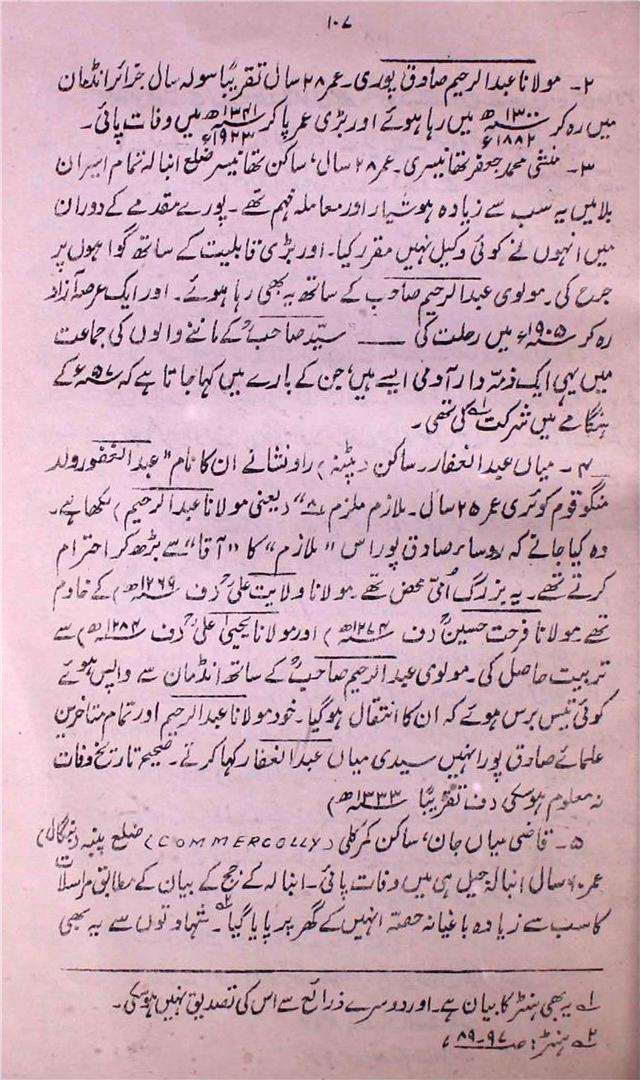 ۱۰۷
۲۔ مولانا عبدالرحیم صادق پوری۔ عمر ۲۸ سال تقریبًا سولہ سال جزائر انڈمان
میں رہ کر ۱۳۰۰ھ / ۱۸۸۲ء میں رہا ہوئے اور بڑی عمر پا کر ۱۳۴۱ھ / ۱۹۲۳ء میں وفات پائی۔
۳۔ منشی محمد جعفر تھانیسری۔ عمر ۲۸ سال، ساکن تھانیسر ضلع انبالہ تمام اسیران
بلا میں یہ سب سے زیادہ ہوشیار اور معاملہ فہم تھے۔ پورے مقدمے کے دوران
میں انہوں نے کوئی وکیل نہیں مقرر کیا۔ اور بڑی قابلیت کے ساتھ گواہوں پر
جرح کی۔ مولوی عبدالرحیم صاحب کے ساتھ یہ بھی رہا ہوئے۔ اور ایک عرصہ آزاد
رہ کر ۱۹۰۵ء میں رحلت کی ــــــ سیّد صاحبؒ کے ماننے والوں کی جماعت
میں یہی ایک ذمّہ دار آدمی ایسے ہیں، جن کے بارے میں کہا جاتا ہے کہ ۵۷ء کے
ہنگامے میں شرکت کی تھی۔ ۱ے
۴۔ میاں عبدالغفار۔ ساکن (پٹنہ) راونشا نے ان کا نام "عبدالغفور ولد
منگو قوم کوئری عمر ۲۵ سال۔ ملازم ملزم ۸" (یعنی مولانا عبدالرحیم) لکھا ہے۔
وہ کیا جانے کہ روساء صادق پور اس "ملازم" کا "آقا" سے بڑھ کر احترام
کرتے تھے۔ یہ بزرگ اُمّی محض تھے۔ مولانا ولایت علیؒ (ف ۱۲۶۹ھ) کے خادم
تھے مولانا فرحت حسینؒ (ف ۱۲۷۴ھ) اور مولانا یحییٰ علیؒ (ف ۱۲۸۴ھ) سے
تربیت حاصل کی۔ مولوی عبدالرحیم صاحبؒ کے ساتھ انڈمان سے واپس ہوئے
کوئی تیس برس ہوئے کہ ان کا انتقال ہو گیا۔ خود مولانا عبدالرحیم اور تمام متاخرین
علمائے صادق پور انہیں سیدی میاں عبدالغفار کہا کرتے۔ صحیح تاریخ وفات
نہ معلوم ہو سکی (ف تقریبًا ۱۳۳۳ھ)
۵۔ قاضی میاں جان، ساکن کمرکلی (COMMERCOLLY) ضلع پبنہ (بنگال)
عمر ۶۰ سال انبالہ جیل ہی میں وفات پائی۔ انبالہ کے جج کے بیان کے مطابق مراسلات
کا سب سے زیادہ باغیانہ حصّہ انہیں کے گھر پر پایا گیا ۲ے۔ شہادتوں سے یہ بھی
۱ے یہ بھی ہنٹر کا بیان ہے۔ اور دوسرے ذرائع سے اس کی تصدیق نہیں ہو سکی۔
۲ے ہنٹر: ص ۹۷-۸۹،